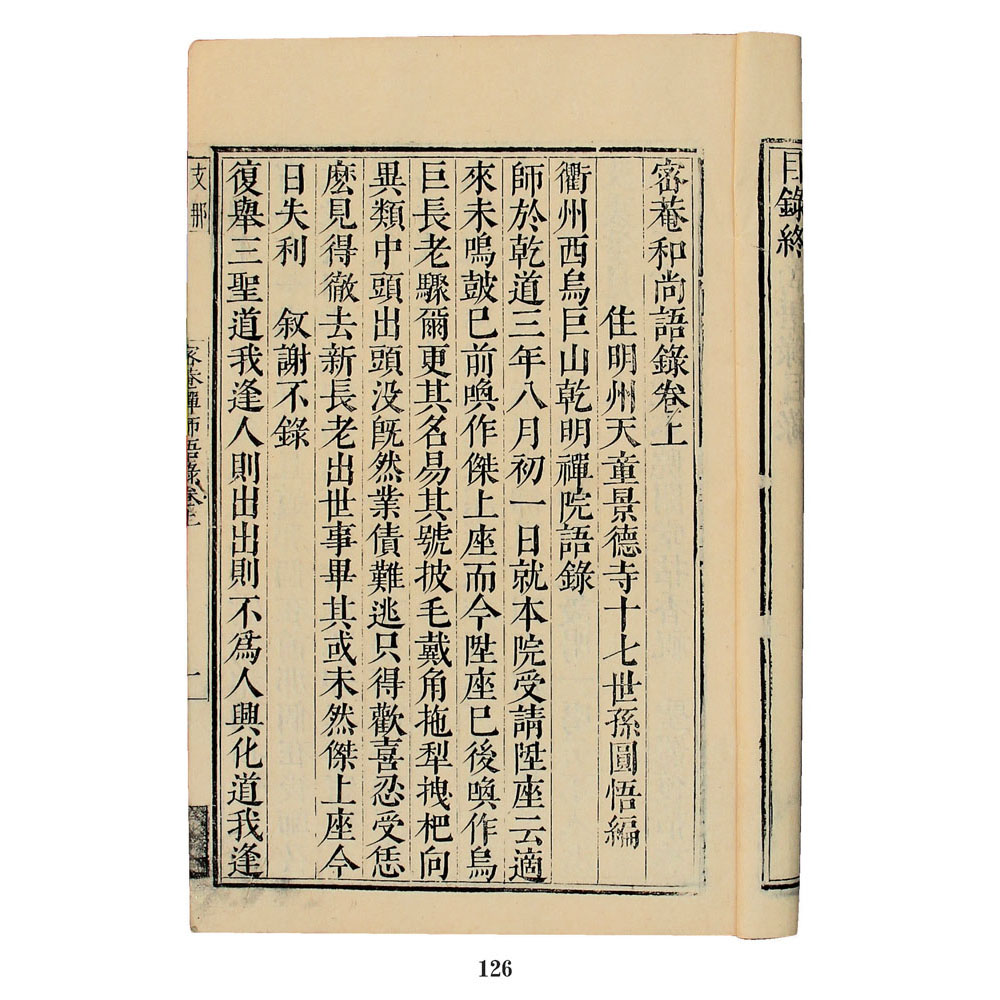 目錄終
密菴和尚語錄卷上
住明州天童景德寺十七世孫圓悟編
衢州西烏巨山乾明禪院語錄
師於乾道三年八月初一日就本院受請陞座云適
來未鳴皷已前喚作傑上座而今陞座已後喚作烏
巨長老驟爾更其名易其號披毛戴角拖犁拽杷向
異類中頭出頭没旣然業債難逃只得歡喜忍受恁
麽見得徹去新長老出世事畢其或未然傑上座今
日失利 叙謝不錄
復舉三聖道我逢人則出出則不爲人興化道我逢
支那
密菴禪師語錄卷上
一
126